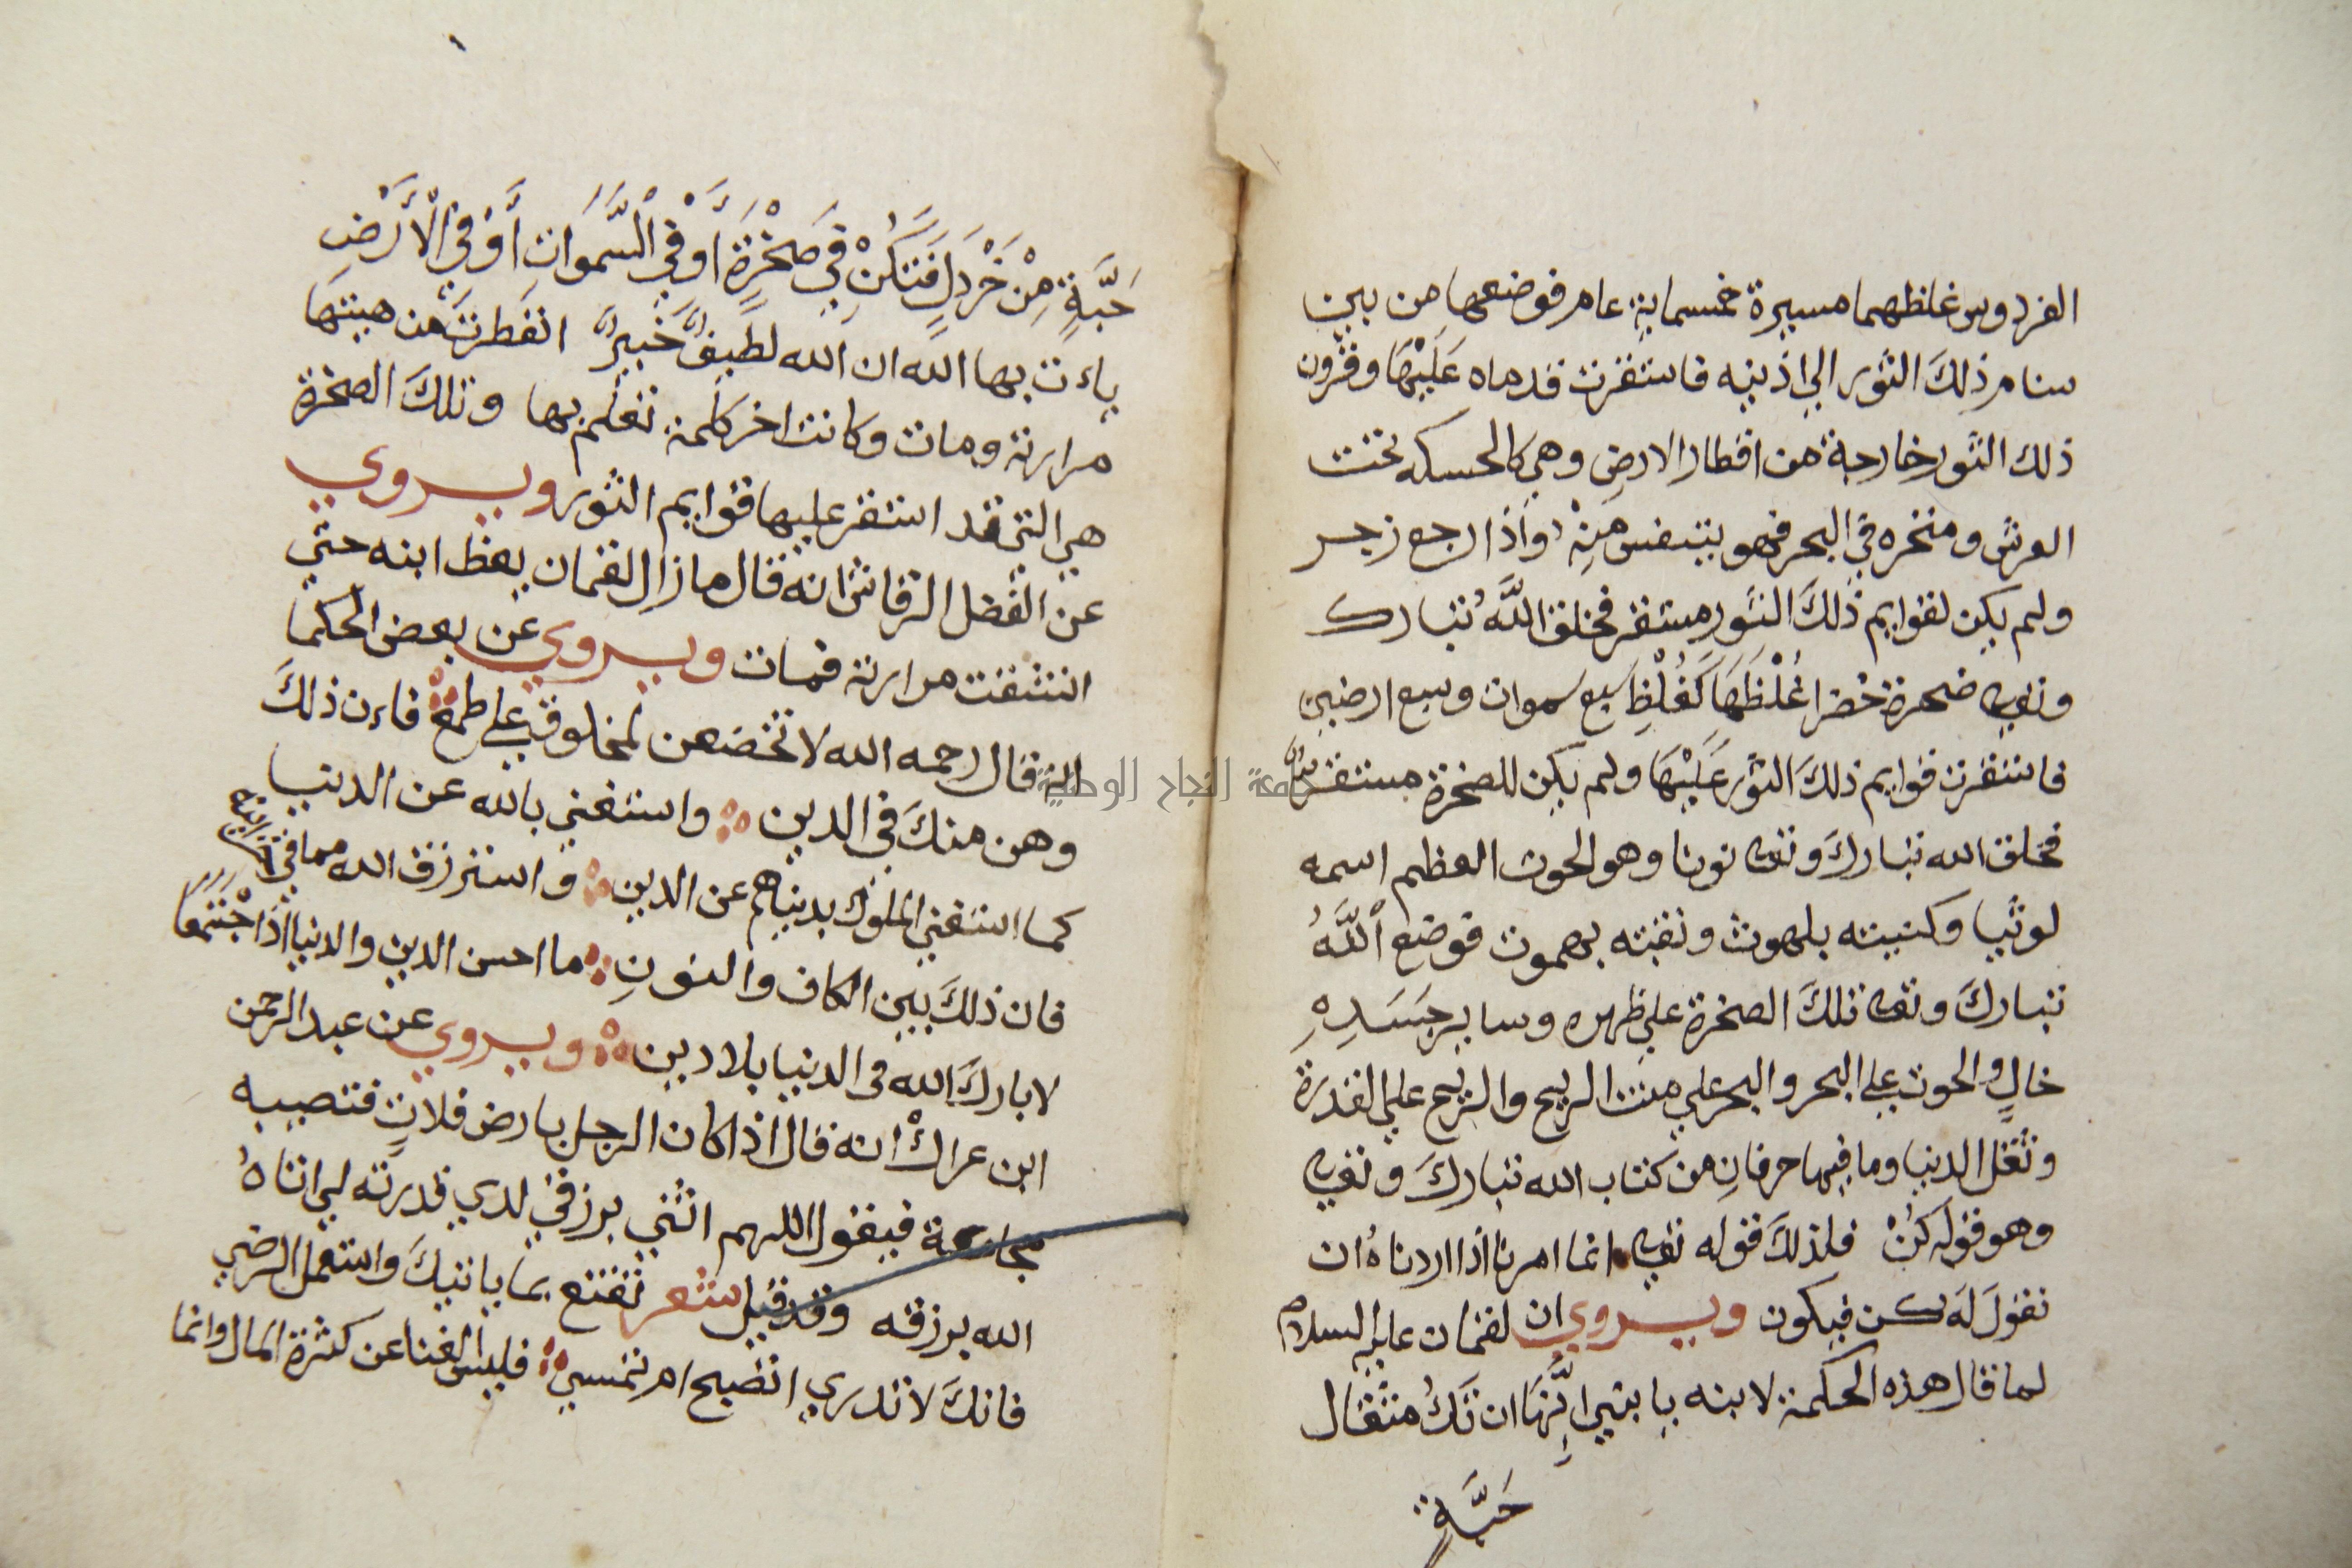 الفردوس غلظهما مسيرة خمسماية عام فوضعها من بين
سنام ذلِكَ الثور الي اذنيه فاستقرت قدماه عَلَيْهَا وقرون
ذلك الثور خارجة من اقطار الارض وهي كالحسكه تحت
العرش ومنخره في البحر فهو يتنفس مِنْهُ واذا رجع زجر
ولم يكن لقوايم ذلكَ الثَورِ مستقر فخلق اللَّهُ تبارك
وتعالى ضحرة خضرا غُلْظَهَا كَغُلْظِ سبع سموات وسبع ارضين
فاستقرت قوايم ذلكَ الثور عَلَيْهَا ولم يكن للصخرة مستقر
فخلق الله تباركَ وتعالى نونا وهو الحوت العظيم اسمه
لوثيا وكنيته بلهوث ولقبته بهموت فوضع اللَّهُ
تباركَ وتعالى تلكَ الصخرة علي ظهره وساير جَسَدِهِ
خالٍ والحوت علي البحر والبحر علي متن الريح والريح علي القدرة
وثقل الدنيا وما فيها حرفانِ من كتاب الله تباركَ وتعالى
وهو قوله كُنْ فلذلكَ قوله تعالى انما امرنا اذا اردناهُ ان
نقولَ لَه كن فيكون ويروي ان لقمان عليه السلام
لما قال هذه الحكمة لابنه يا بني اِنَّهَا ان تَكُ مثقال
حَبَّةٍ
حَبَّةٍ مِنْ خَرْدَلٍ فَتَكُنْ فِي صَخْرَةٍ أَوْ فِي الْسَّمَوَاتِ أَوْ فِي الْأَرْضِ
ياءت بها الله ان الله لطيفٌ خَبِيرٌ انفطرت من هيبتها
مرارته ومات وكانت اخر كلمة تعلم بها وتلكَ الصخرة
هي التي قد استقر عليها قوايم الثور ويروي
عن الفضل الرقاشي انه قال ما زال لقمان يعظ ابنه حتي
انشقت مرارته فمات ويروي عن بعض الحكما
انه قال رحمه الله لا تخضعن لمخلوق علي طمع فاءن ذلكَ
وهن منكَ في الدين واستغني بالله عن الدنيا
كما استغني الملوك بدنياهم عن الدين واسترزق الله مما في خزاينه
فان ذلكَ بين الكاف والنونِ ما احسن الدين والدنيا اذا اجْتَمَعَا
لا باركَ الله في الدنيا بلا دين ويروي عن عبد الرحمن
ابن عراك انه قال اذا كان الرجل بارض فلاتٍ فتصيبه
مجاعة فيقول اللهم ائتني برزقي لدي قدرته لي اتاهُ
الله برزقه وقد قيل شعر تقنع بما ياتيكَ واستعمل الرضي
فانكَ لا تدري اتصبح ام تمسي فليس الغنا عن كثرة المال وانما
جامعة النجاح الوطنية